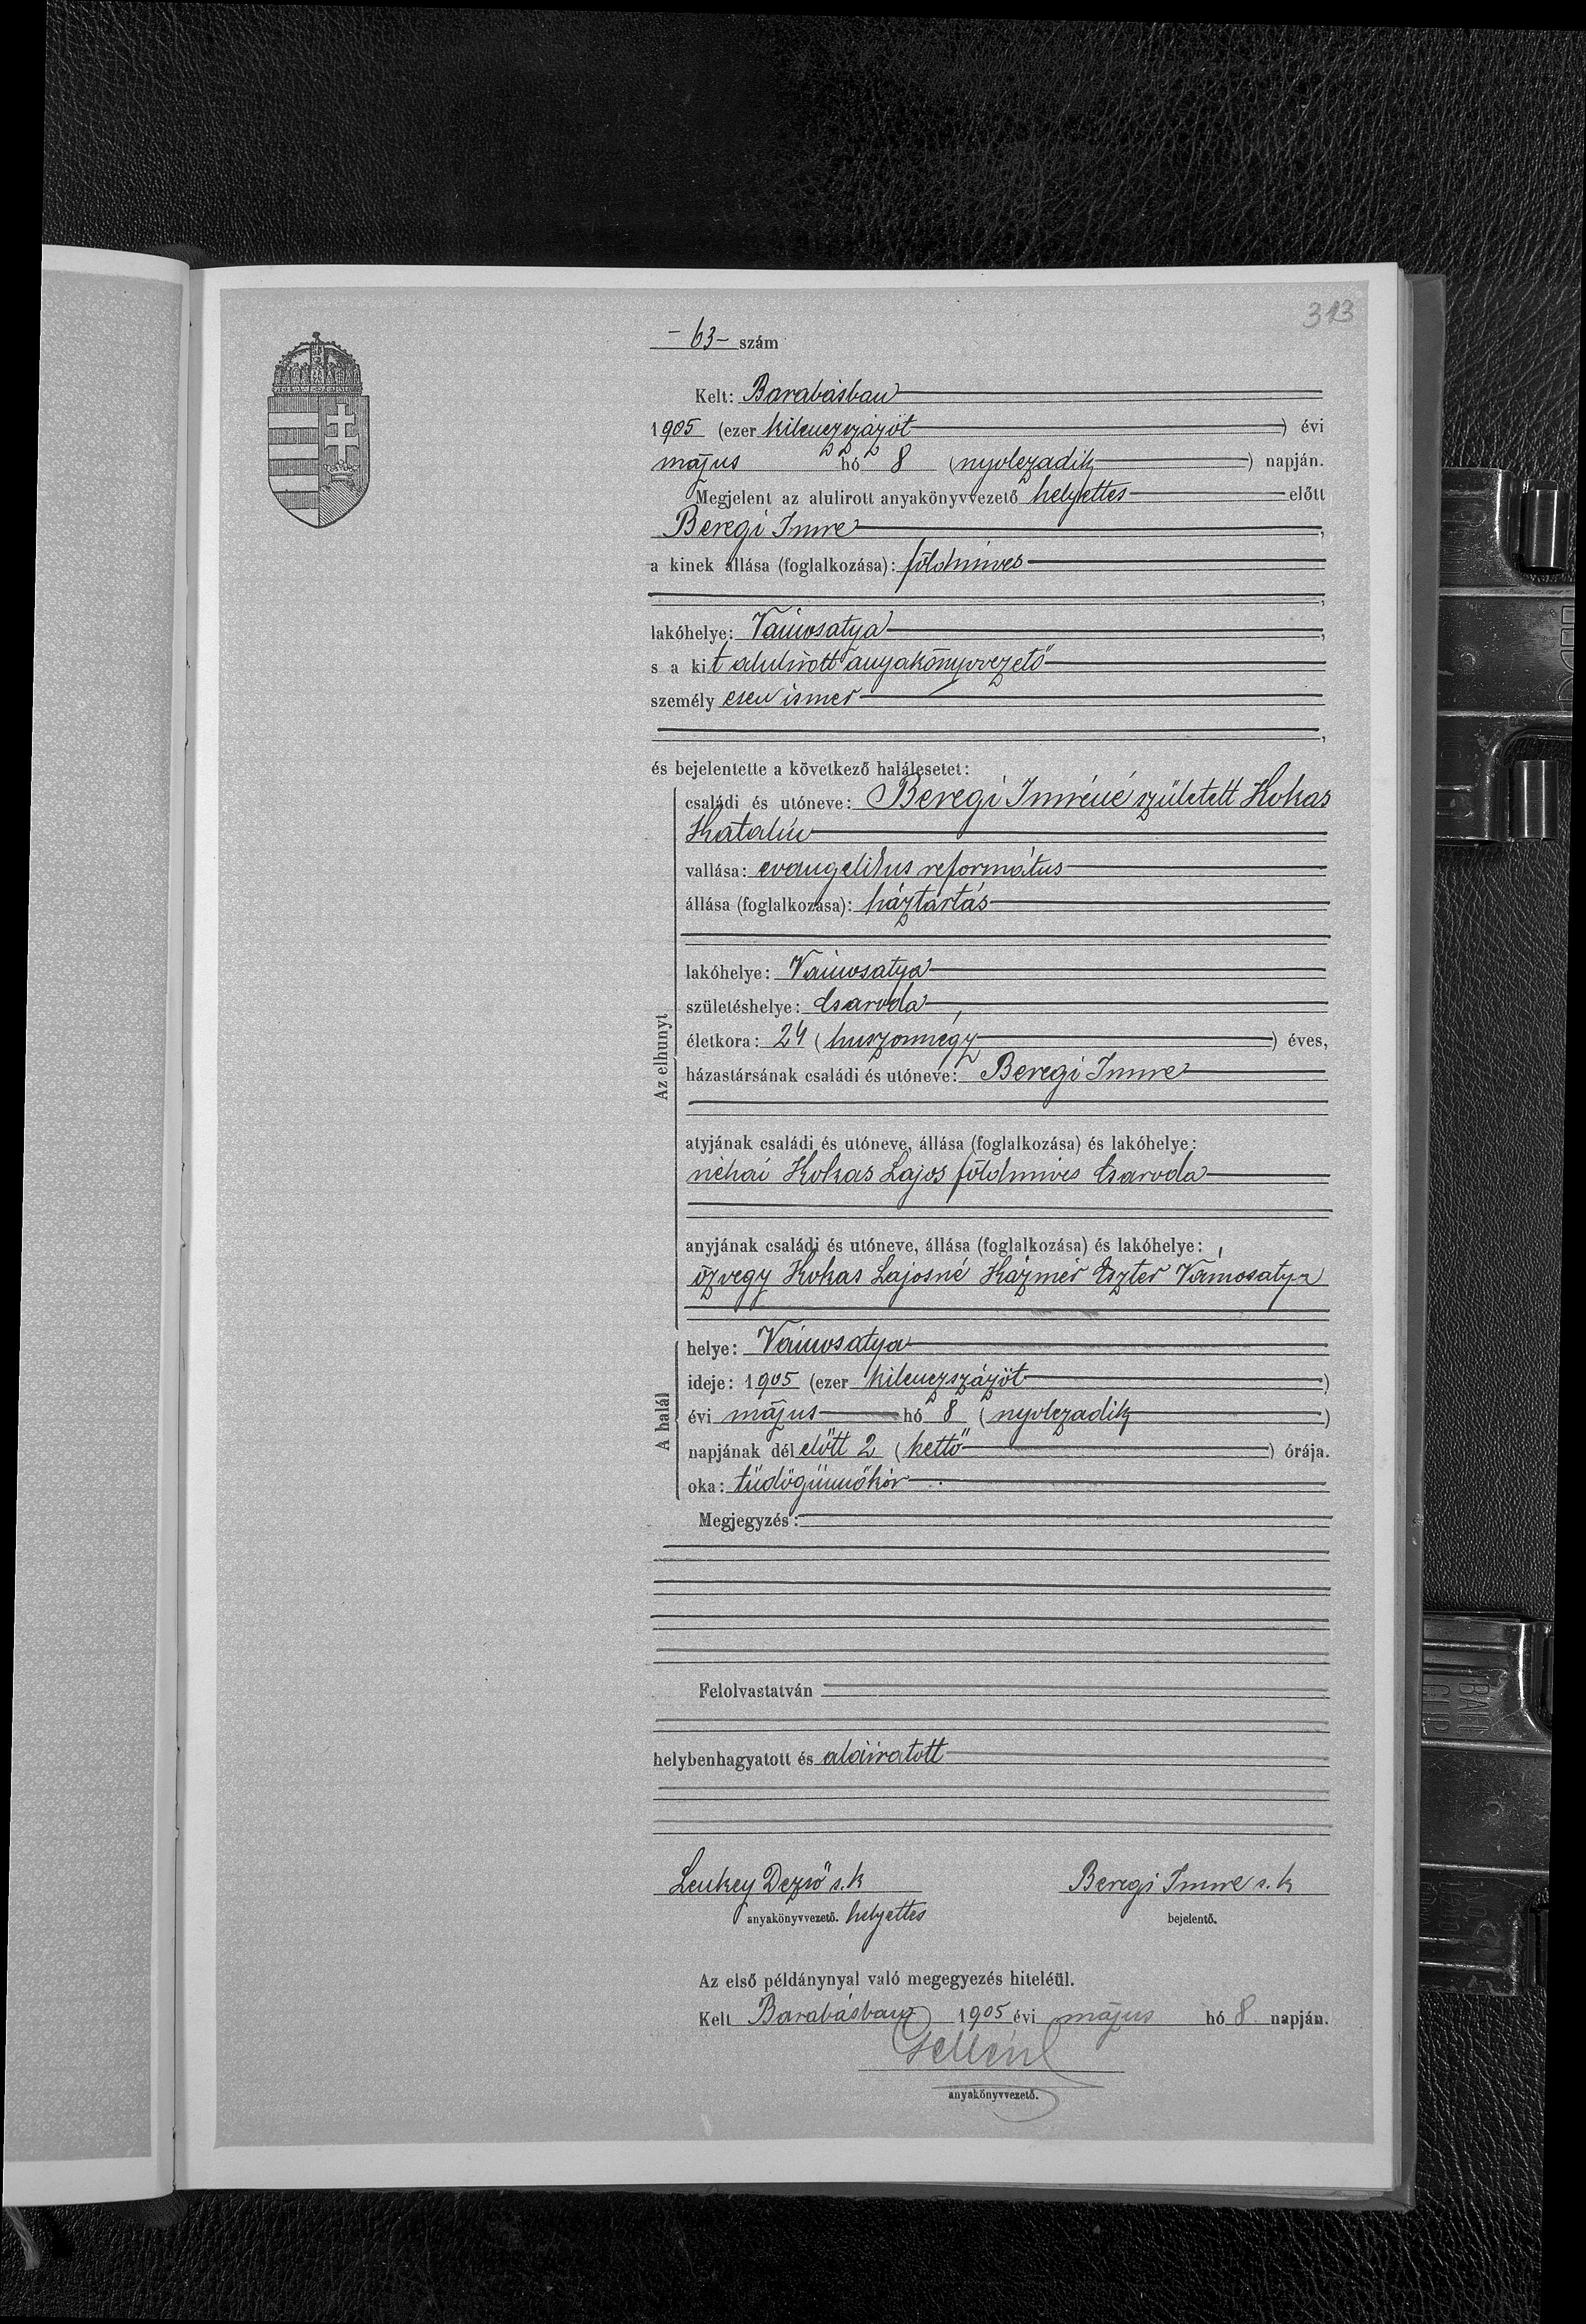 313
- 63 - szám
Kelt: Barabásban
1905 (ezer kilenczszázöt) évi
május hó 8 (nyolczadik) napján.
Megjelent az alulirott anyakönyvvezető helyettes előtt
Beregi Imre,
a kinek állása (foglalkozása): földmives
,
lakóhelye: Vámosatya,
s a kit alulirott anyakönyvvezető
személyesen ismer
,
és bejelentette a következő halálesetet:
Az elhunyt
családi és utóneve: Beregi Imréné született Kokas
Katalin
vallása: evangelikus református
állása (foglalkozása): háztartás
lakóhelye: Vámosatya
születéshelye: Csaroda,
életkora: 24 (huszonnégy) éves,
házastársának családi és utóneve: Beregi Imre
atyjának családi és utóneve, állása (foglalkozása) és lakóhelye:
néhai Kokas Lajos földmives Csaroda
anyjának családi és utóneve, állása (foglalkozása) és lakóhelye:
özvegy Kokas Lajosné Kázmér Eszter Vámosatya
A halál
helye: Vámosatya
ideje: 1905 (ezer kilenczszázöt)
évi május hó 8 (nyolczadik)
napjának délelőtt 2 (kettő) órája.
oka: tüdőgümőkór
Megjegyzés:
Felolvastatván
helybenhagyatott és aláiratott
Leukey Dezső s.k Beregi Imre s.k
anyakönyvvezető. helyettes bejelentő.
Az első példánynyal való megegyezés hiteléül.
Kelt Barabásban 1905 évi május hó 8 napján.
anyakönyvvezető.
BAR
CLIP